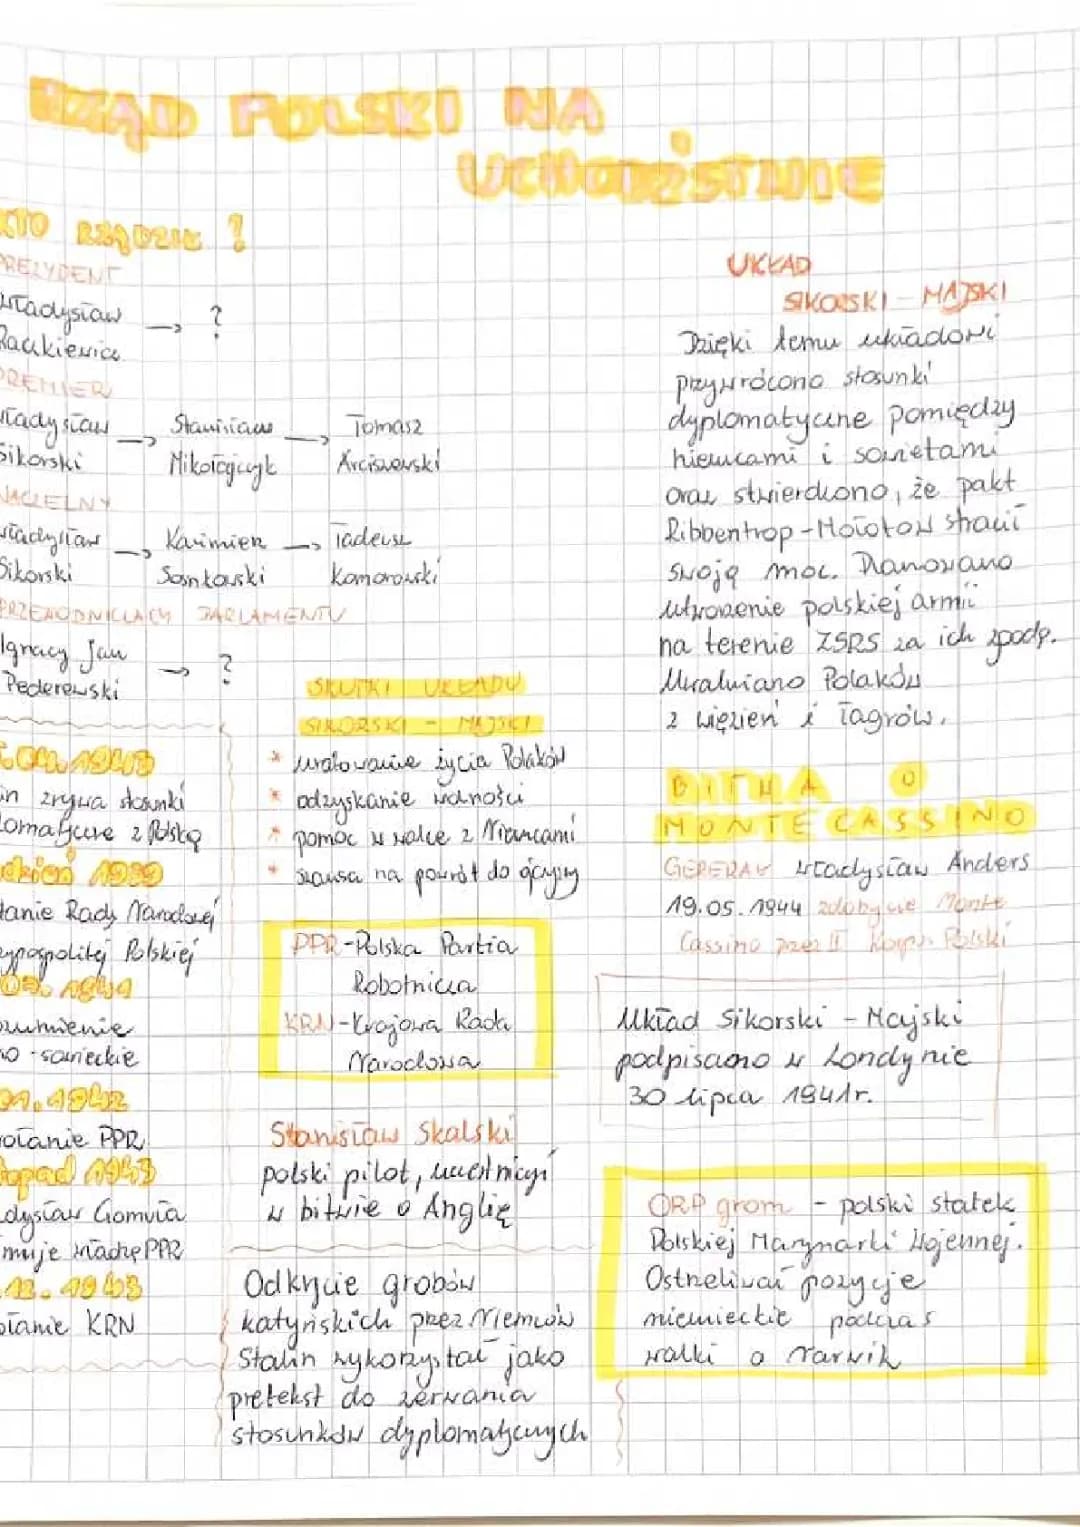 RZĄD POLSKI NA
UCHODŹSTWIE
KTO RZĄDZIŁ ?
PREZYDENT
Władysław → ?
Raczkiewicz
PREMIER
Władysław → Stanisław → Tomasz
Sikorski Mikołajczyk Arciszewski
NACZELNY
Władysław → Kazimierz → Tadeusz
Sikorski Sosnkowski Komorowski
PRZEWODNICZĄCY PARLAMENTU
Ignacy Jan → ?
Pederewski
.04.1943
in zrywa stosunki
lomatyczne z Polską
dzień 1939
łanie Rady Narodowej
zypospolitej Polskiej
1941
zumienie
o-sowieckie
01.1942
ołanie PPR
topad 1943
dysław Gomuła
muje władzę PPR
.12.1943
ołanie KRN
SKUTKI UKŁADU
SIKORSKI - MAJSKI
* uratowanie życia Polaków
* odzyskanie wolności
* pomoc w walce z Niemcami
* szansa na powrót do ojczyzny
PPR-Polska Partia
Robotnicza
KRN-Krajowa Rada
Narodowa
Stanisław Skalski
polski pilot, uczestniczył
w bitwie o Anglię
Odkrycie grobów
katyńskich przez Niemców
Stalin wykorzystał jako
pretekst do zerwania
stosunków dyplomatycznych
UKŁAD
SIKORSKI - MAJSKI
Dzięki temu układowi
przywrócono stosunki
dyplomatyczne pomiędzy
niemcami i sowietami
oraz stwierdzono, że pakt
Ribbentrop-Mołotow stracił
swoją moc. Planowano
utworzenie polskiej armii
na terenie ZSRS za ich zgodą.
Uwalniano Polaków
z więzień i łagrów.
BITWA O
MONTE CASSINO
GENERAŁ Władysław Anders
19.05.1944 zdobycie Monte
Cassino przez II Korpus Polski
Układ Sikorski - Majski
podpisano w Londynie
30 lipca 1941r.
ORP grom - polski statek
Polskiej Marynarki Wojennej.
Ostrzeliwał pozycje
niemieckie podczas
walki o Narwik